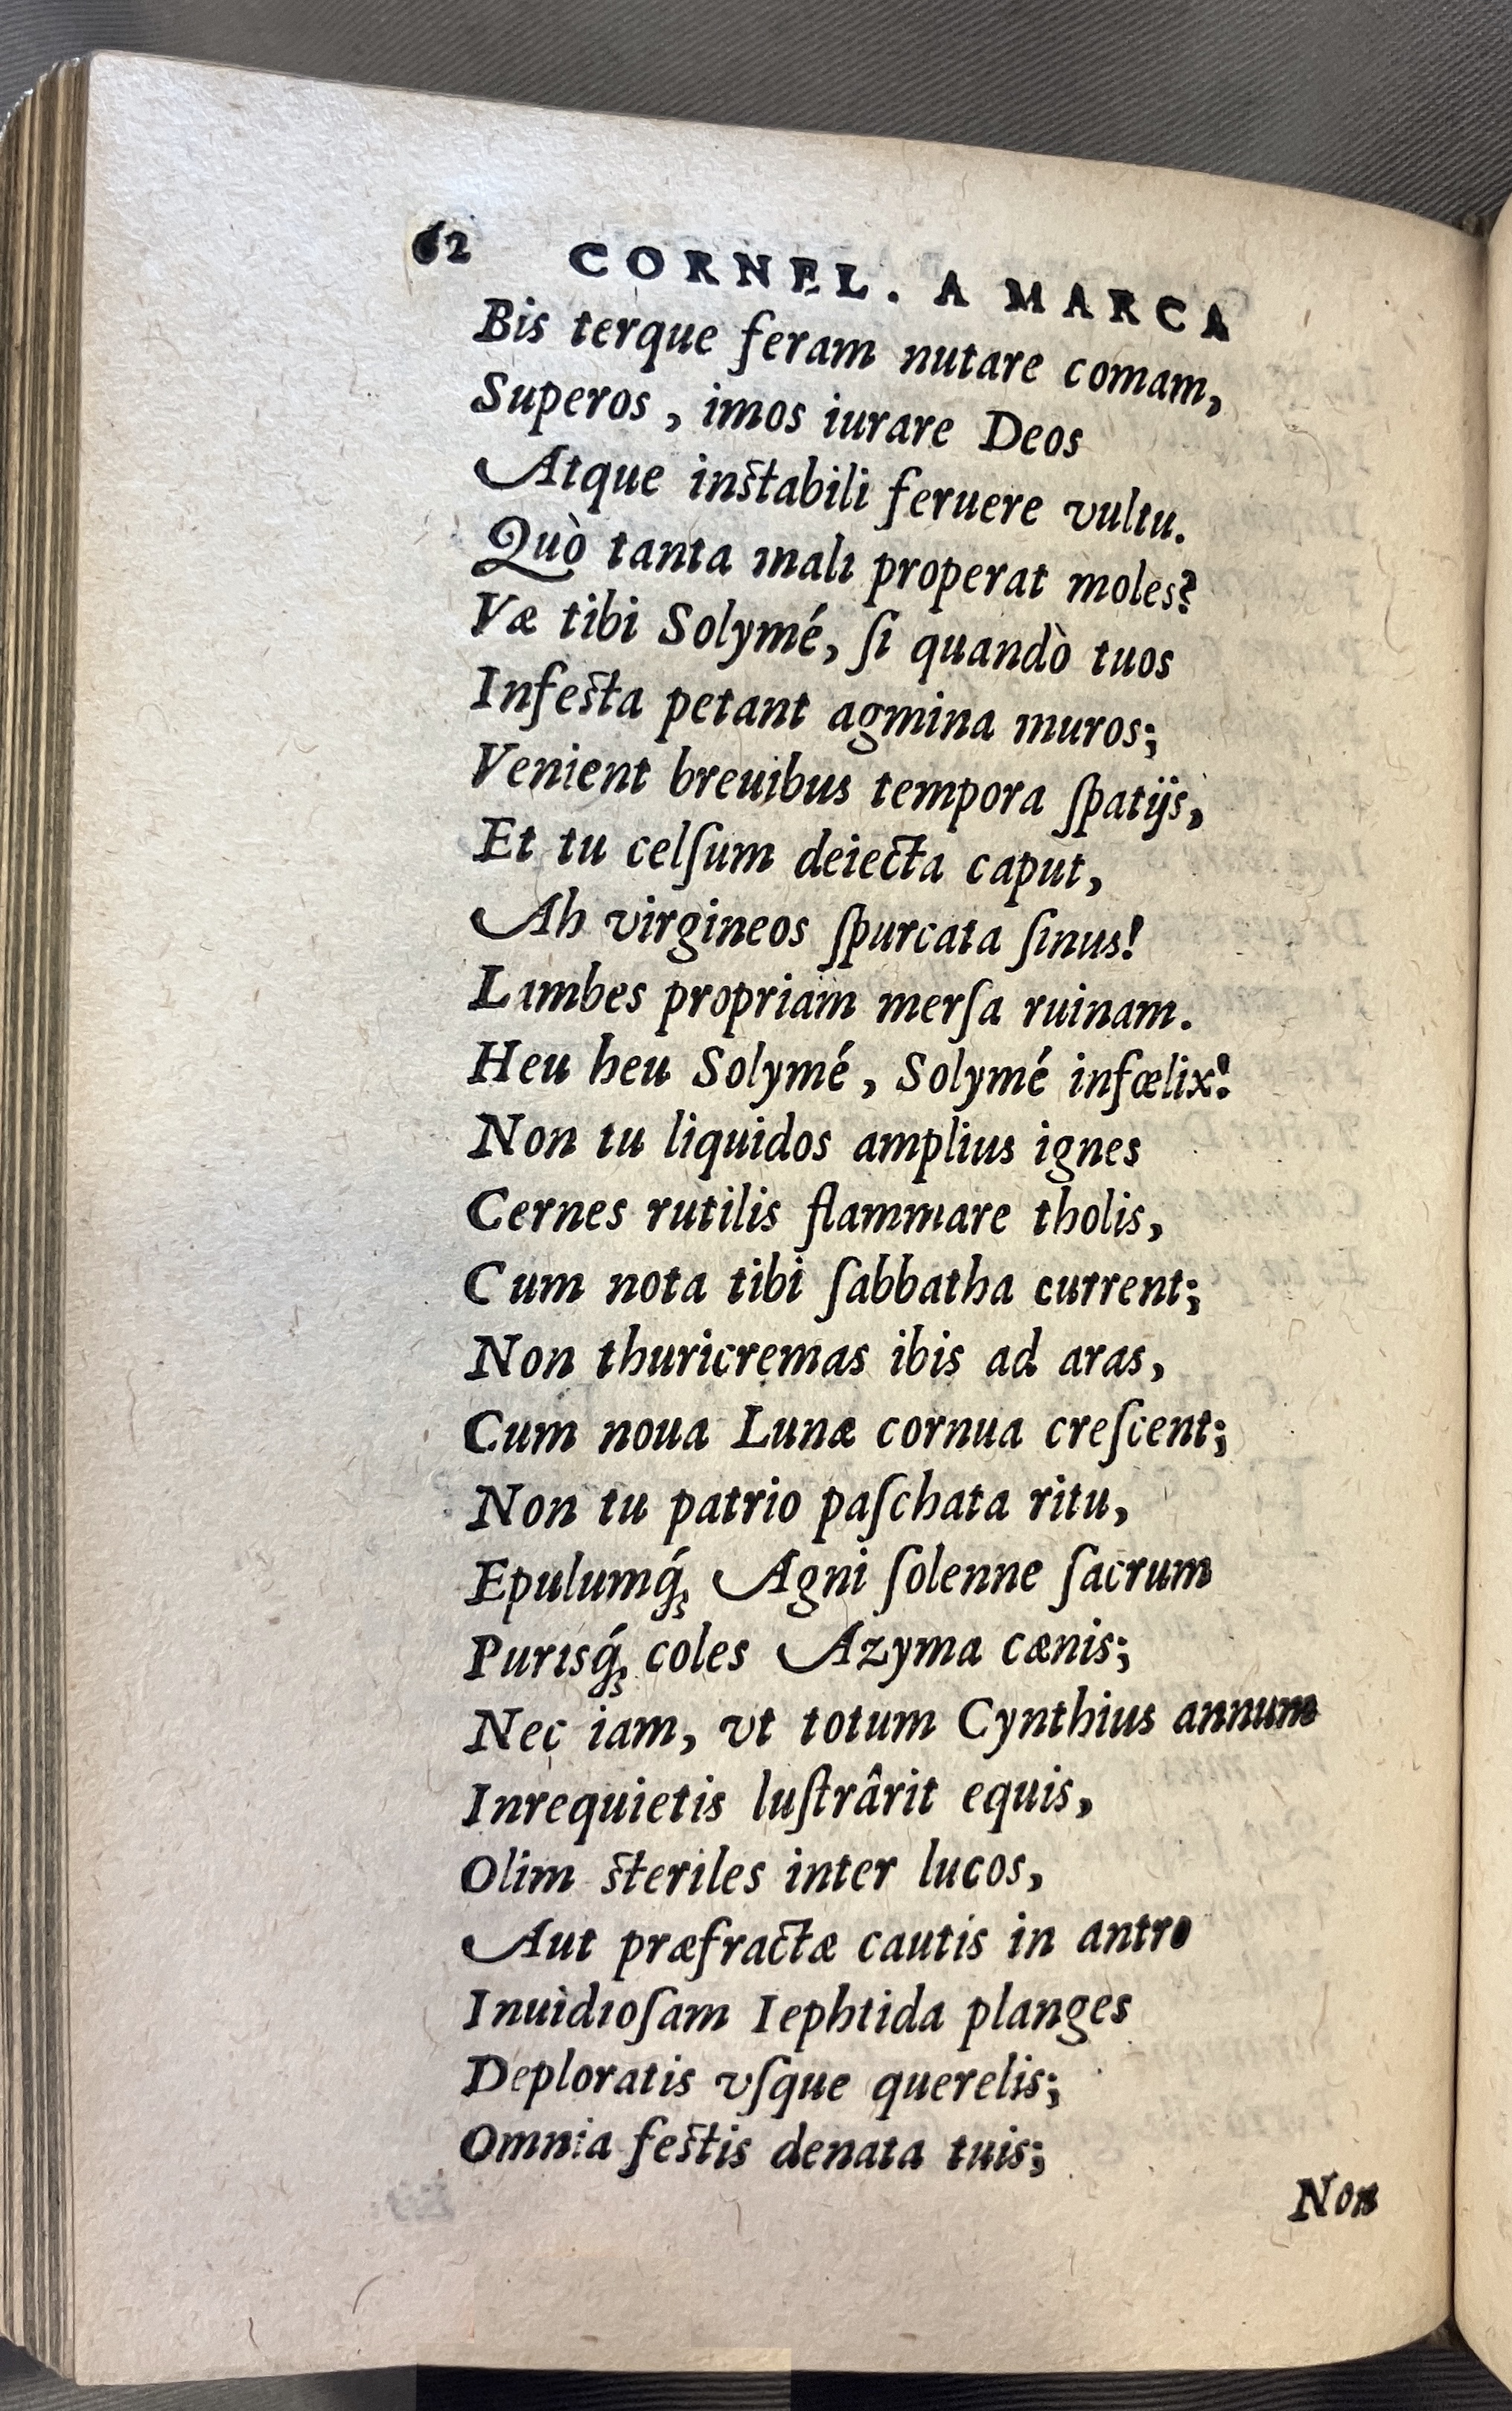 62 CORNEL. A MARCA
Bis terque feram nutare comam,
Superos, imos iurare Deos
Atque instabili feruere vultu.
Quò tanta mali properat moles?
Væ tibi Solymé, ſi quandò tuos
Infesta petant agmina muros;
Venient breuibus tempora ſpatijs,
Et tu celſum deiecta caput,
Ah virgineos ſpurcata ſinus!
Lambes propriam merſa ruinam.
Heu heu Solymé, Solymé infœlix!
Non tu liquidos amplius ignes
Cernes rutilis flammare tholis,
Cum nota tibi ſabbatha current;
Non thuricremas ibis ad aras,
Cum noua Lunæ cornua creſcent;
Non tu patrio paſchata ritu,
Epulumq́; Agni ſolenne ſacrum
Purisq́; coles Azyma cænis;
Nec iam, vt totum Cynthius annum
Inrequietis luſtrârit equis,
Olim steriles inter lucos,
Aut præfractæ cautis in antro
Inuidioſam Iephtida planges
Deploratis vſque querelis;
Omnia festis denata tuis;
Non